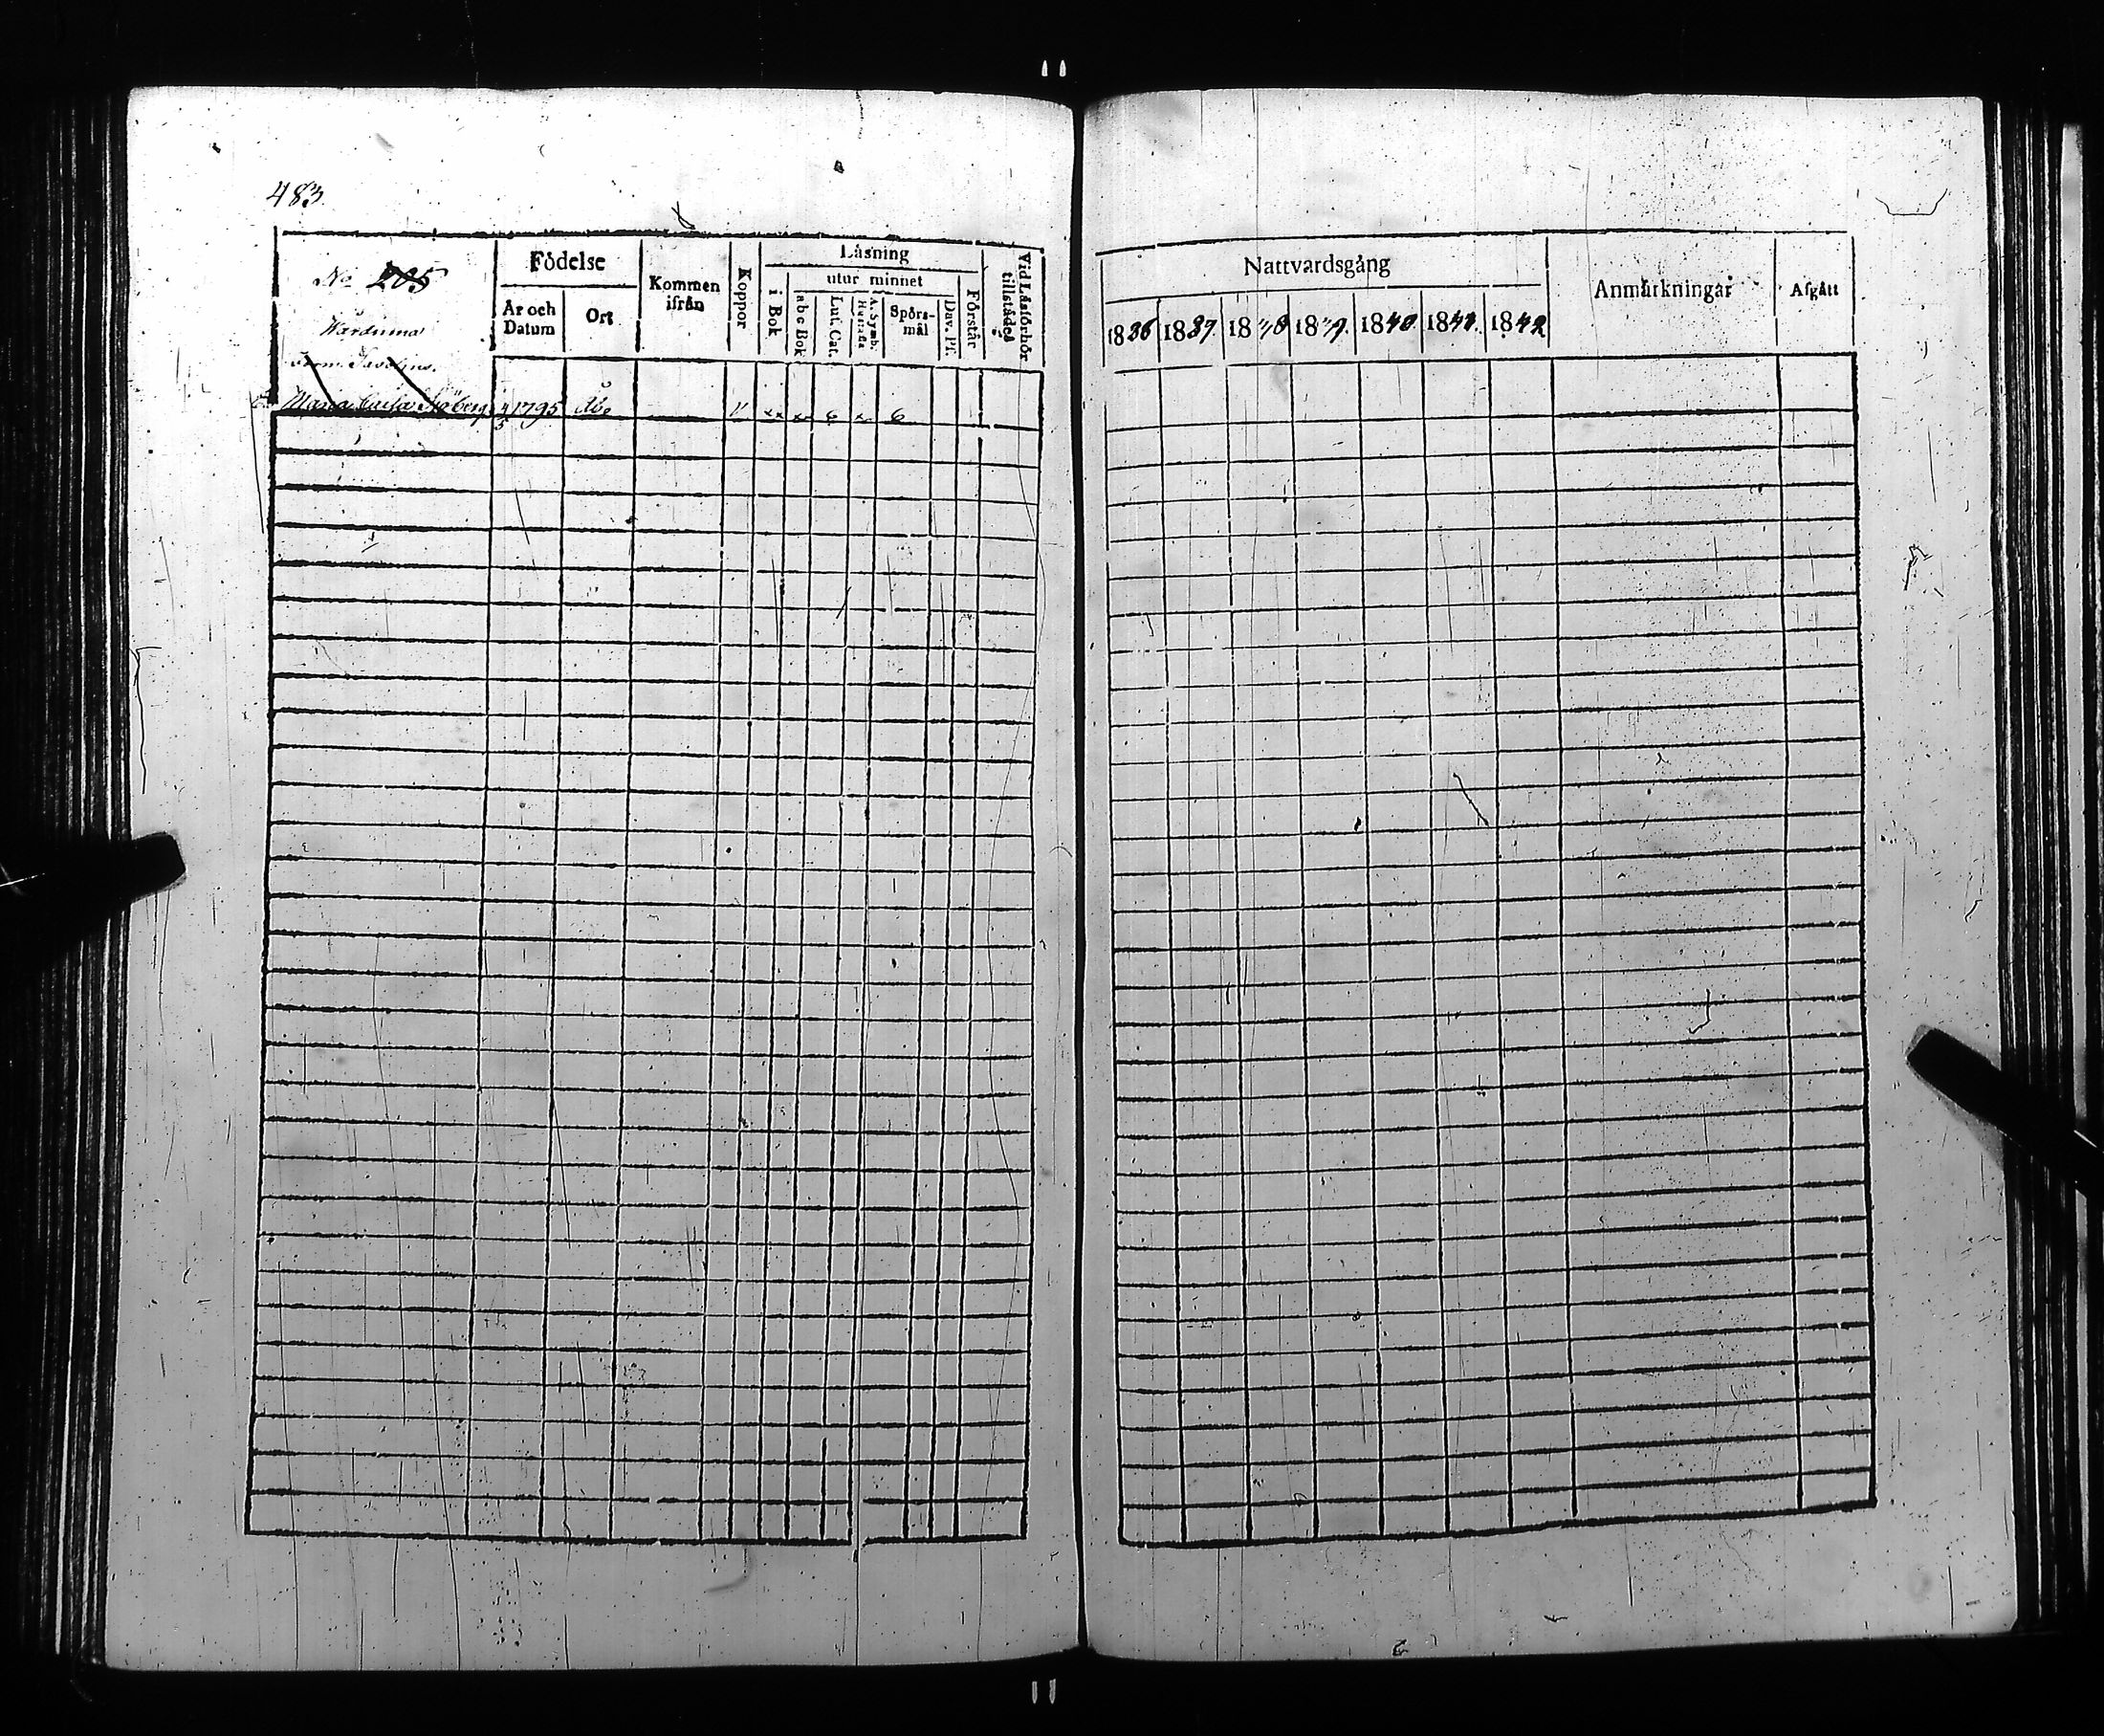 483.
No 205
Födelse
Kommen ifrån
Koppor
Läsning
utur minnet
År och Datum
Ort
i Bok
abc Bok
Lut. Cat.
A. Symb.
Spörsmål
Dav. Ps.
Förstår
Vid Läsförhör tillstädes
Maria 1795 Åbo v xx xx 6
Nattvardsgång
Anmärkningar
Afgått
1836 1837. 1838 1839. 1840. 1841. 1842